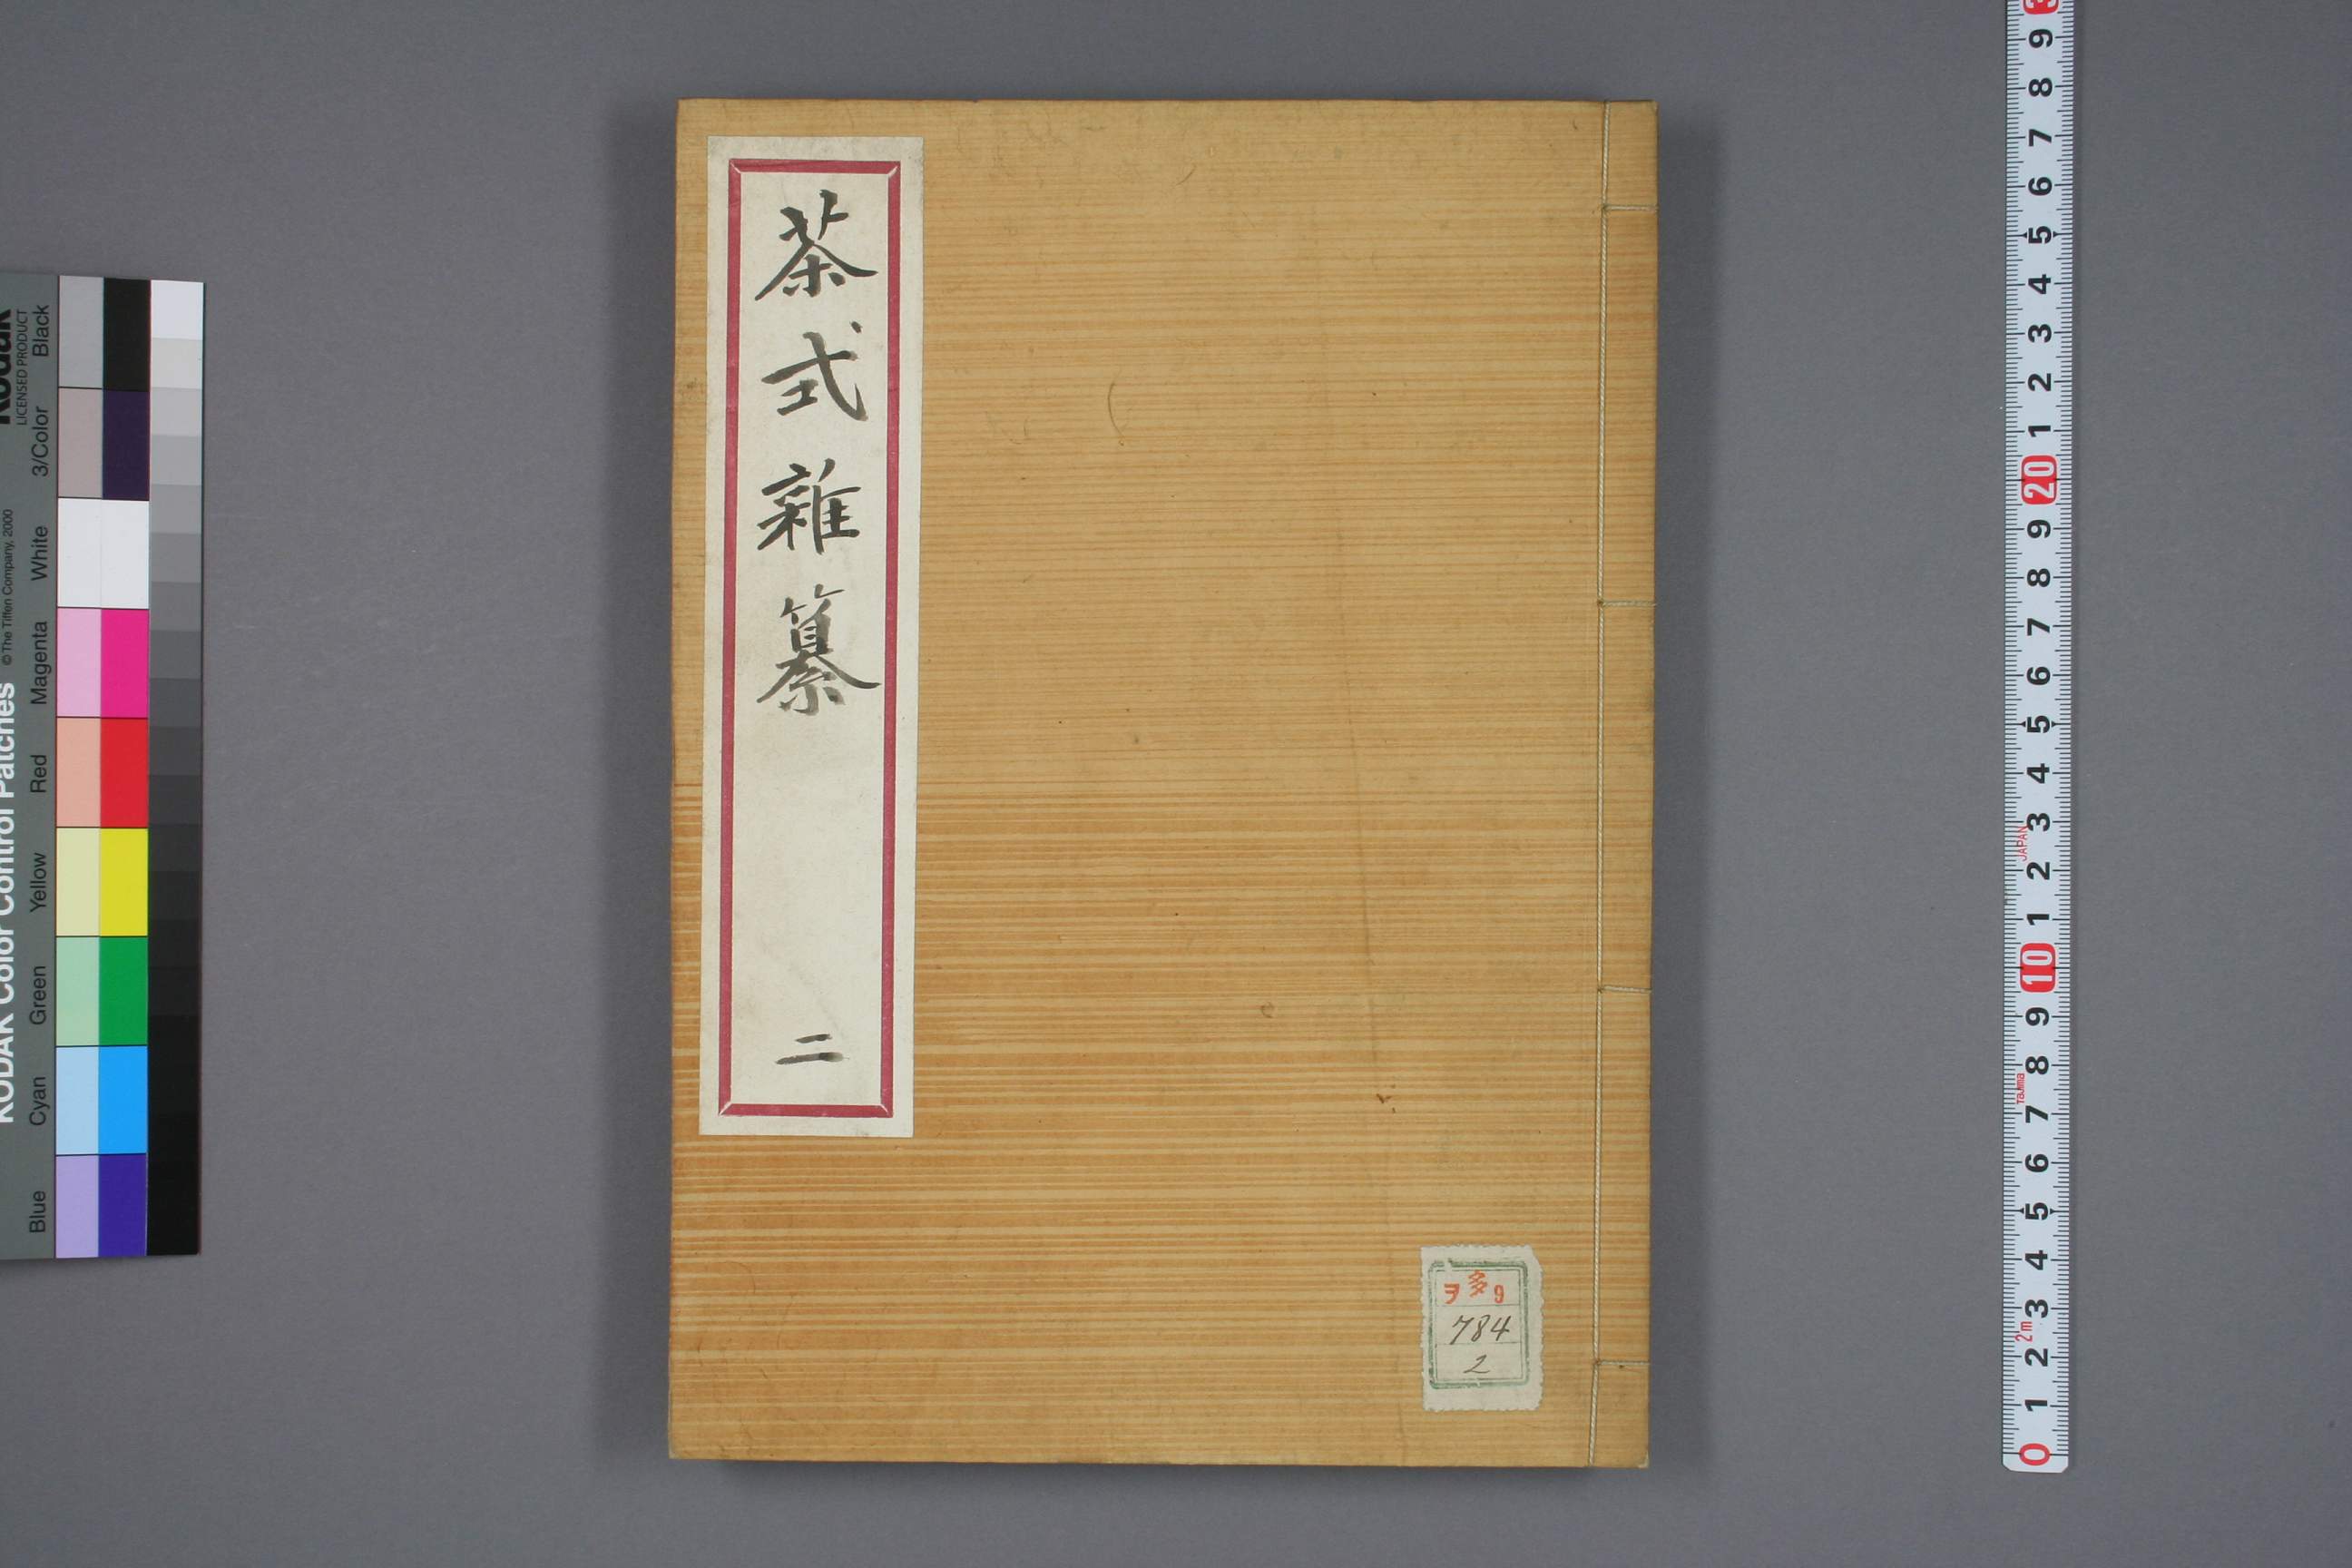 茶式雜纂
二
ヲ多9
784
2
Kodak
LICENSED PRODUCT
KODAK Color Control Patches
© The Tiffen Company, 2000
Blue Cyan Green Yellow Red Magenta White 3/Color Black
9
8
7
6
5
4
3
2
1
20
9
8
7
6
5
4
3
JAPAN
2
1
10
9
8
Tajima
7
6
5
4
3
2m
2
1
0